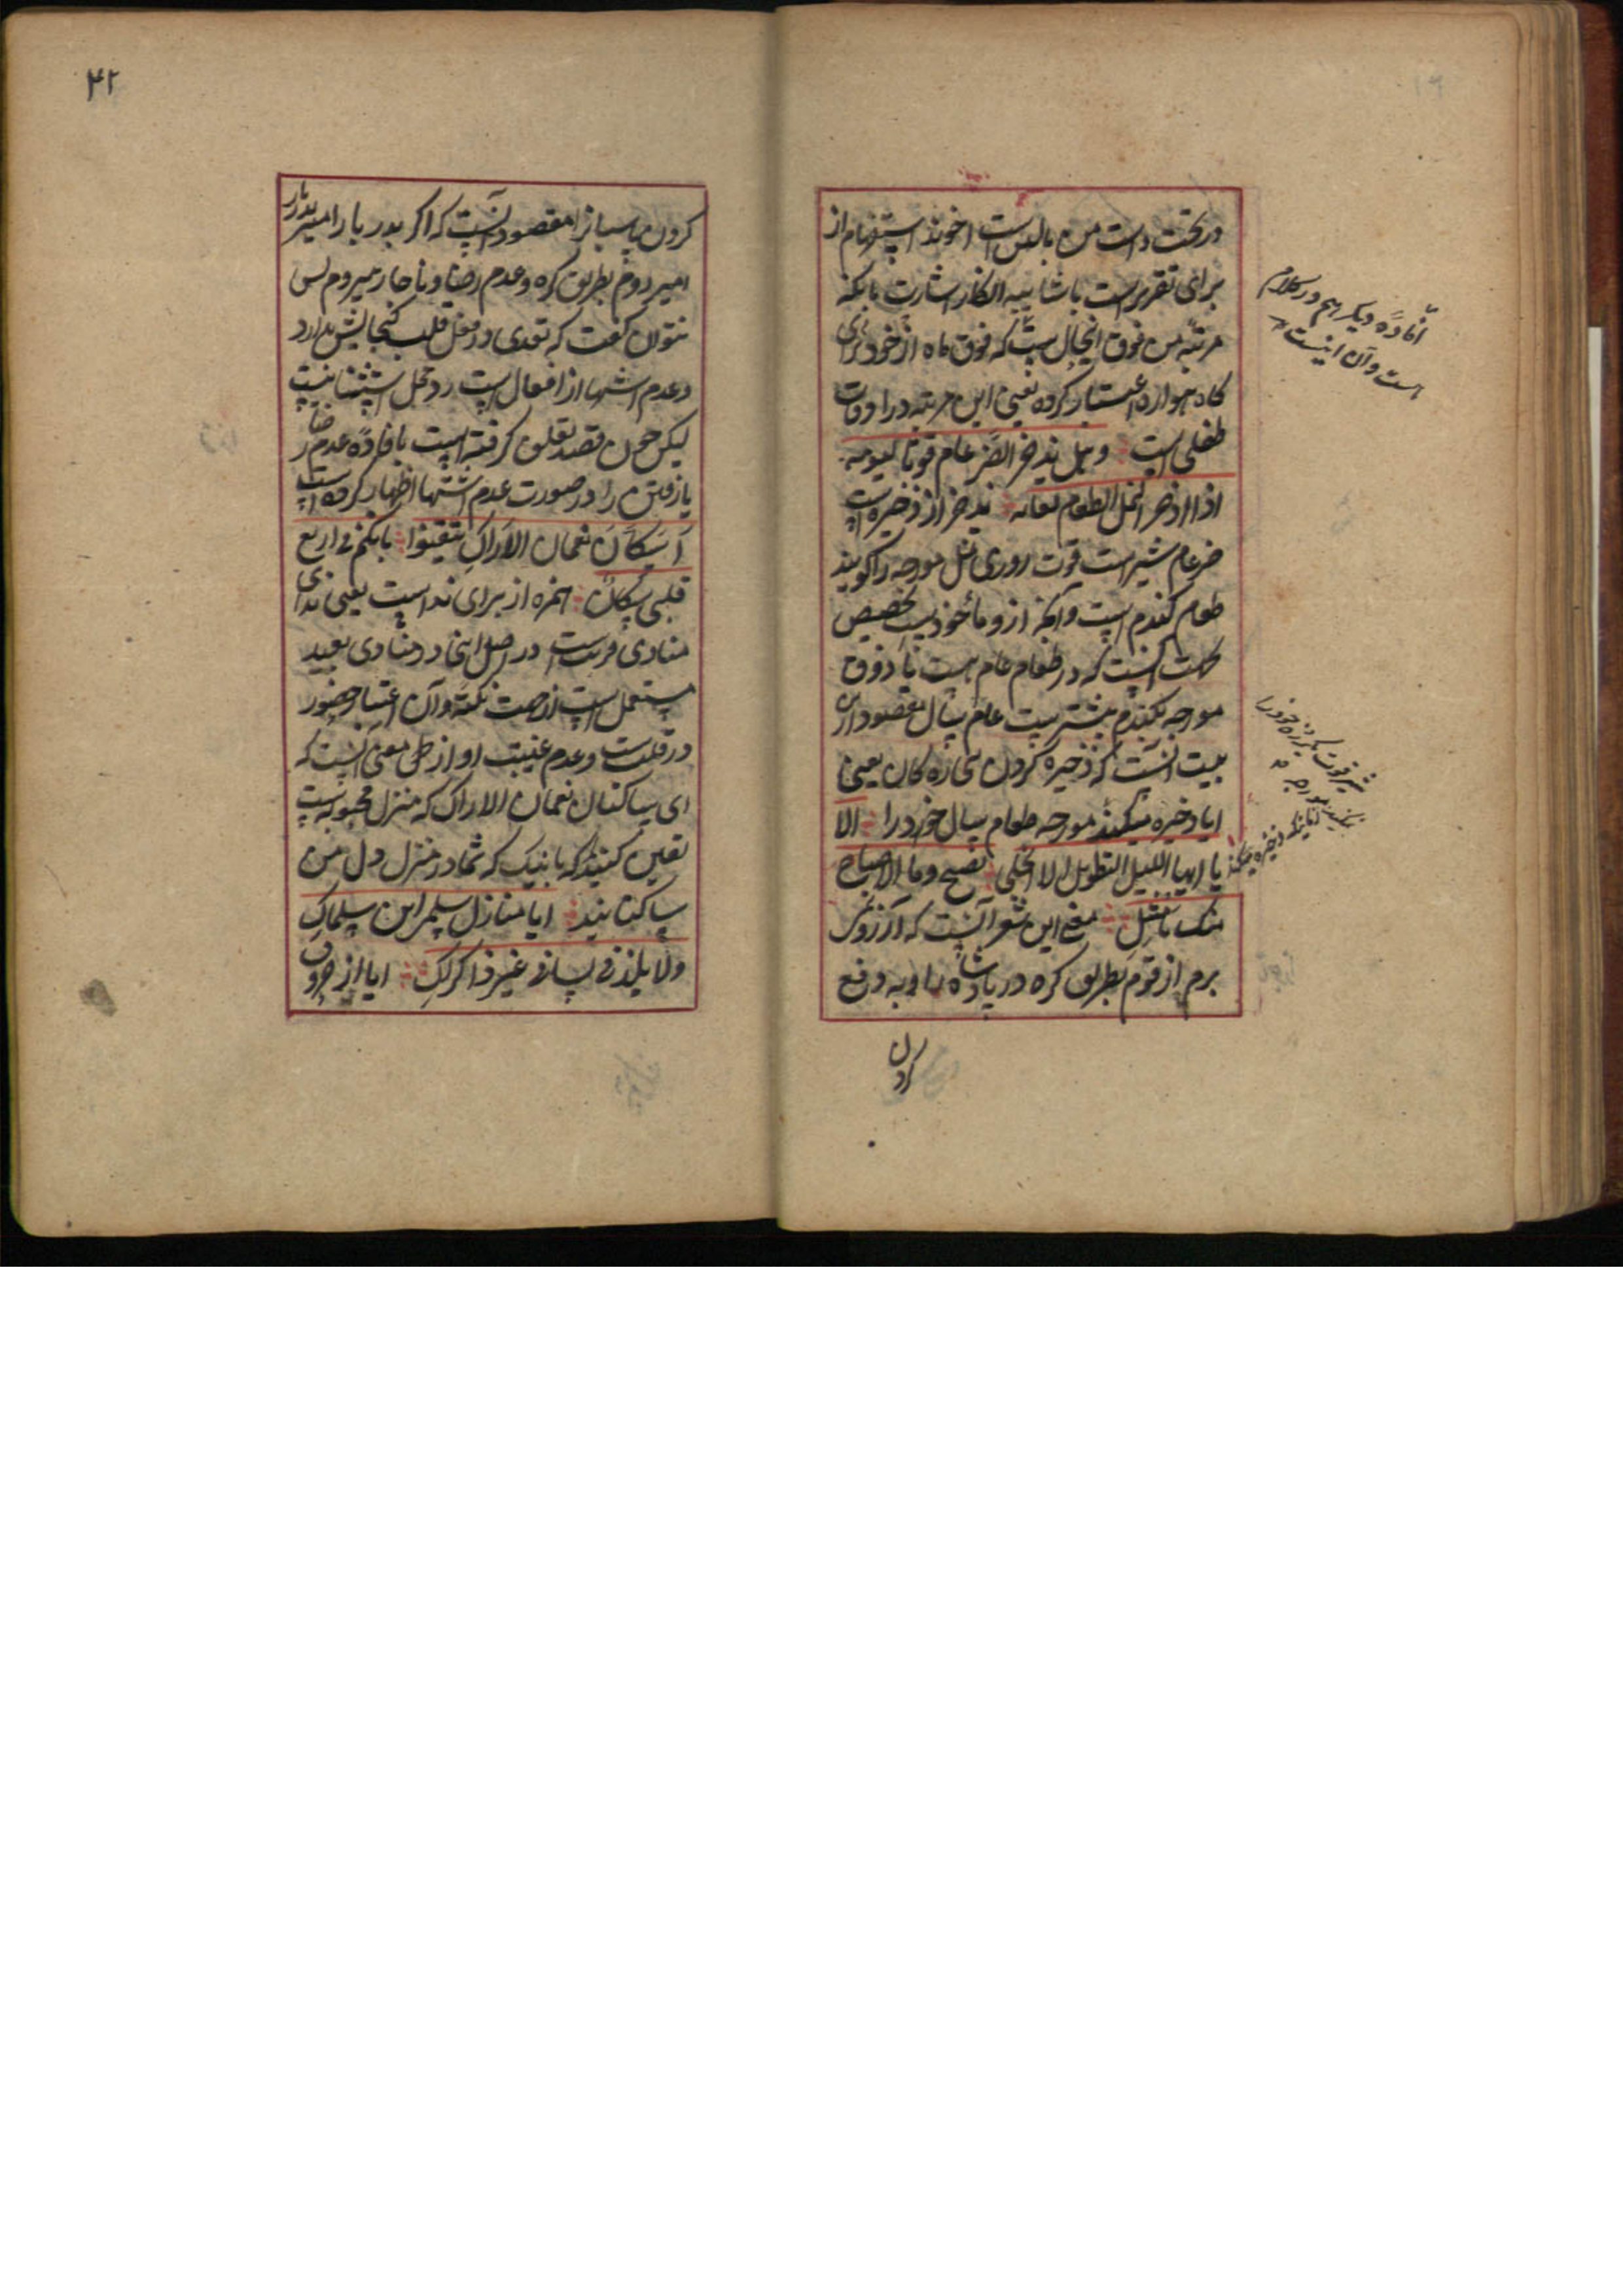 در تحت دست من بالین است اخوند استفهام از
برای تقریر است با شایبه انکار اشارت بانکه
مرتبه من فوق انحال است که فوق ماه از خود برای
کاه هواره اعتبار کرده یعنی این مرتبه در اوقات
طفلی است وهل یذخر الضرغام قوتا لیومه
اذا ادخر النمل الطعام لعامه یذخر از ذخیره است
ضرغام شیر است قوت روزی نمل مورچه را گویند
طعام کندم است وآنچه ازو مأخوذ است تخصیص
انست که در طعام عام هست یا ذوق
مورچه بکندم بیشتر است عام سال مقصود ازین
بیت انست که ذخیره کردن یعنی
ایا ذخیره میکند مورچه طعام سال خود را الا
یا ایها اللیل الطویل الا انجلی بصبح وما الاصباح
منک بامثل معنی این شعر آنست که آرزوی
برم از قوم بطریق کره در یاد شاه را وبه دفع
کردن
افادهٔ دیکر هم در کلام
هست وآن اینست
شیر قوت یکروزه خود را
مورچه
ذخیره میکند
۴۲
کردن پاسبانرا مقصود آنست که اکر بدر بار امیر
امیر روم بطریق کره وعدم رضا وناچار میروم پس
نتوان کفت که تعدی در فعل قلب کنجایش ندارد
وعدم اشتها از افعال است رد محل استثنا نیست
لیکن چون قصد تعلق کرفته است بافادهٔ عدم رضا
یا رفتن را در صورت عدم اشتها اظهار کرده است
أسکان نعمان الاراک تیقنوا بانکم فی اربع
قلبی سکان همزه از برای ندا است یعنی ندای
منادی قریب است در اصل اینجا در منادی بعید
مستعمل است از جهت نکته وآن اعتبار حضور
در قلب است وعدم غیبت او از معنی آنست که
ای ساکنان نعمان الاراک که منزل محبوبه است
یقین کنید که بانیک که شما در منزل دل من
ساکنانید ایا منازل سلمی این سلماک
ولا یلذ فی لسانی غیر ذکراک ایا از حروف